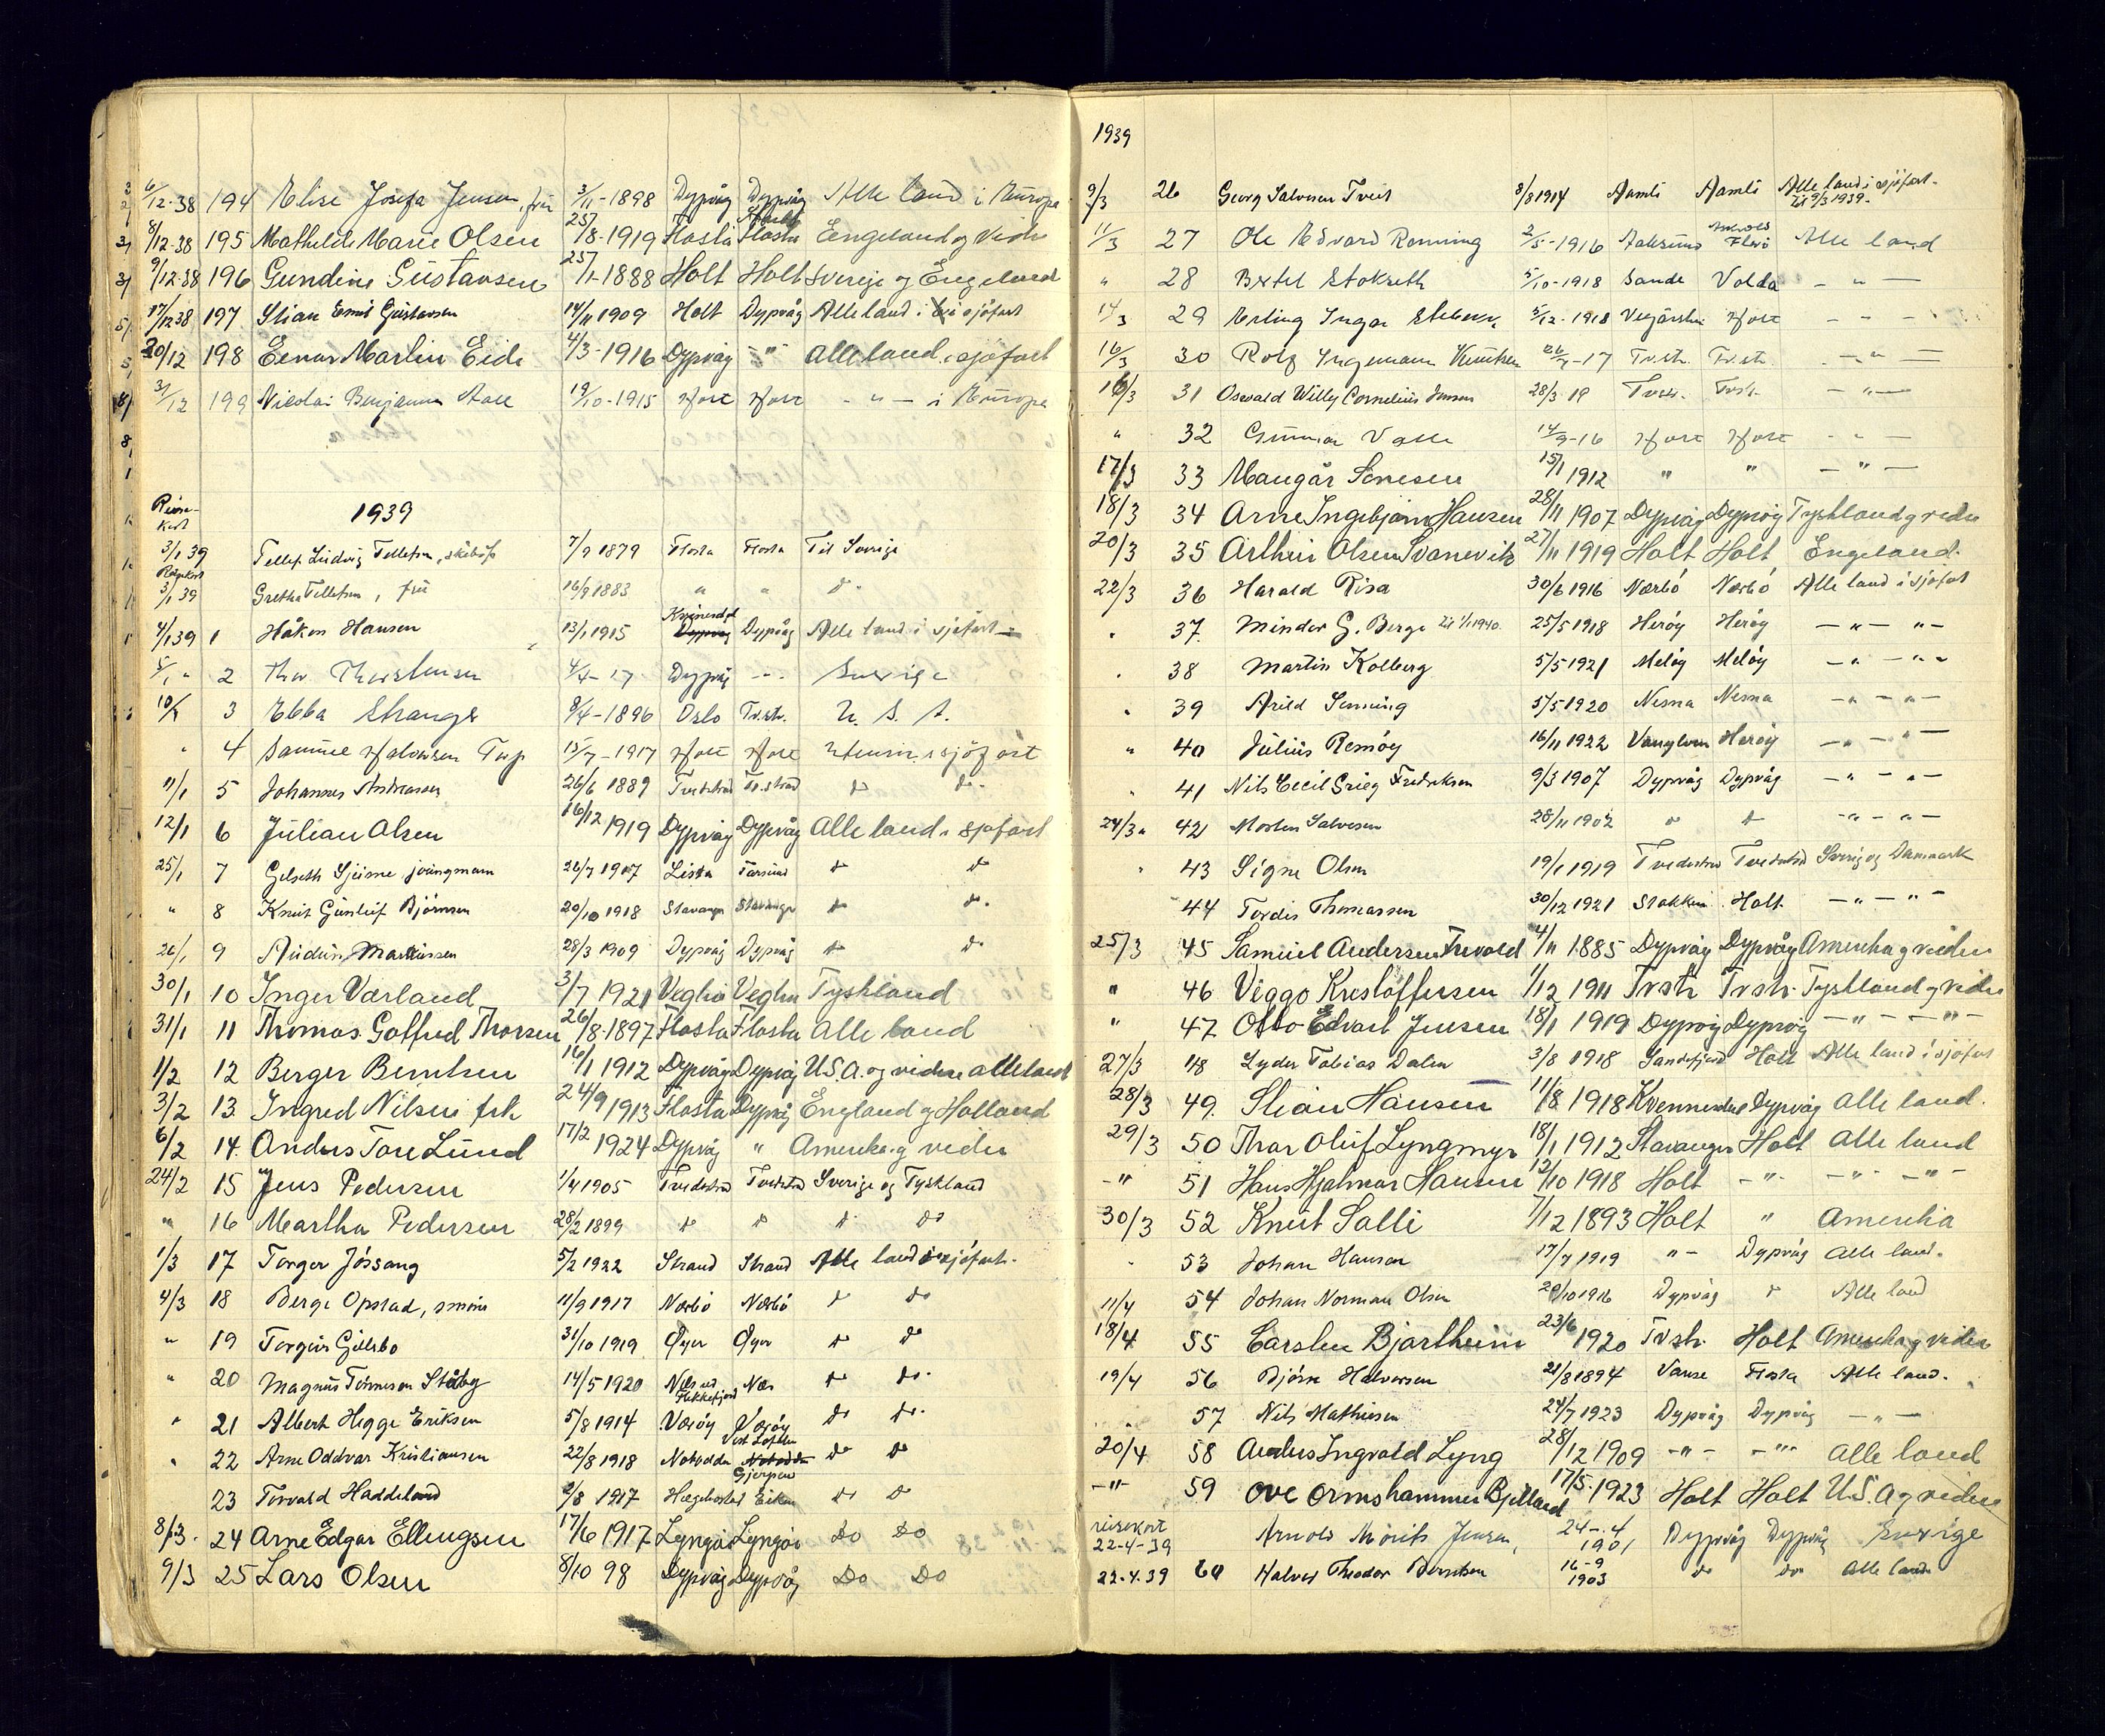 6/12-38 194 Elise Josefa Jensen, frü 3/11-1898 Dypvåg Dypvåg Alle land i Europa
8/12-38 195 Mathilde Marie Olsen 25/8-1919 Flosta Flosta Eengeland og vider
9/12-38 196 Gundine Gustavsen 25/1-1888 Holt Holt Sverige og Engeland
17/12 38 197 Stian Emil Gustavsen 14/11 1909 Holt Dypvåg Alle land i sjöfart
20/12 198 Einar Martin Eide 4/3-1916 Dypvåg -"- alle land i sjöfart
31/12 199 Nicolai Benjamin Aase 19/10-1915 Holt Holt - " - i Europa
Reise-kort 1939
3/1 39 Tellef Ludvig Tellefsen, skibsf 7/9 1879 Flosta Flosta Til Sverige
Reisekort 3/1 39 Grethe Tellefsen, frü 16/9 1883 " " do
4/1 39 1 Håkon Hansen 13/1 1915 Kvinesdal Dypvåg Dypvåg Alle land i sjöfart
5/1 " 2 Thor Thorstensen 4/4-17 Dypvåg -"- Sverige
10/1 3 Ebba Stranger 9/4-1896 Oslo Tv.str. U. S. A.
" 4 Samuel Halvorsen Torp 15/7-1917 Holt Holt sjöfart
11/1 5 Johannes Andreassen 26/6 1889 Tvedestrand Tv.strand do do
12/1 6 Julian Olsen 16/12 1919 Dypvåg Dypvåg Alle land i sjöfart
25/1 7 Gelseth jungmann 26/7 1917 Lista Farsund do do
" 8 Knut Gunluf Björnsen 20/10 1918 Stavanger Stavanger do do
26/1 9 Audun Markussen 28/3 1909 Dypvåg Dypvåg do do
30/1 10 Inger Værland 3/7 1921 Veglu Veglu Tyskland
31/1 11 Thomas Gotfred Thorsen 26/8-1897 Flosta Flosta alle land
1/2 12 Berger Berntsen 16/1 1912 Dypvåg Dypvåg U.S.A. og videre alle land
3/2 13 Ingred Nilsen frk 24/9 1913 Flosta Dypvåg England og Holland
6/2 14 Anders Tore Lund 17/2 1924 Dypvåg " Amerika og vider
24/2 15 Jens Pedersen 1/4 1905 Tvedestrd Tvedestrd Sverige og Tyskland
" 16 Martha Pedersen 28/2 1899 do do do do
1/3 17 Torger Jössang 5/2 1922 Strand Strand Alle land i sjöfart.
4/3 18 Berge Opstad, smörer 11/9 1917 Nærbö Nærbö do do
" 19 Torgeir Gillebo 31/10 1919 Øyer Øyer do do
" 20 Magnus Tönnesen Ståby 14/5 1920 Nes ved Flekkefjord Nes do do
" 21 Albert Higge Eriksen 5/8 1914 Væröy Væröy Vest Lofoten do do
" 22 Arne Oddvar Kristiansen 22/8 1918 Notodden Notodden Gjerpen do do
23 Torvald Haddeland 2/8 1917 Hægebostad Eiken do do
8/3. 24 Arne Edgar Ellingsen 17/6 1917 Lyngör Lyngör Do Do
9/3 25 Lars Olsen 8/10 98 Dypvåg Dypvåg Do Do
1939
9/3 26 Georg Salvesen Tveit 8/8 1914 Aamli Aamli Alle land i sjöfart. til 9/3 1939.
11/3 27 Ole Edvard Rönning 2/5-1916 Aalesund Askvold Florö Alle land
" 28 Bertel Stokseth 5/10-1918 Sande Volda - " -
14/3 29 Erling Ingar 5/12-1918 Vegårshei Holt - - -
16/3 30 Rolf Ingemann Knutsen 26/7-17 Tv.str. Tv.str. - " -
16/3 31 Oswald Willy Cornelius Jensen 28/3-19 Tvstr. Tvstr. - " -
" 32 Gunnar Valle 14/9-16 Holt Holt - " -
17/3 33 Mangår Senesen 15/1 1912 " " - " -
18/3 34 Arne Ingebjørn Hansen 28/11 1907 Dypvåg Dypvåg Tyskland og vider
20/3 35 Arthur Olsen Svanevik 27/11 1919 Holt Holt Engeland.
22/3 36 Harald Risa 30/6 1916 Nærbö Nærbö Alle land i sjöfart
" 37. Minder G. Berge til 1/1 1940. 25/5 1918 Heröy Heröy - " - " -
" 38 Martin Kolberg 5/5 1921 Melöy Melöy - " - " -
" 39 Arild Senning 5/5 1920 Nesna Nesna - " - " -
" 40 Julius Remöy 16/11 1922 Vanylven Heröy - " - " -
" 41 Nils Cecil Grieg Fredriksen 9/3 1907 Dypvåg Dypvåg - " - " -
24/3 42 Morten Salvesen 28/11 1902 do do - " - " -
" 43 Signe Olsen 19/1 1919 Tvedestrd Tvedestrd Sverig og Danmark
44 Tordis Thomassen 30/12 1921 Stokken Holt - " - " -
25/3 45 Samuel Andersen Trevold 4/11 1885 Dypvåg Dypvåg Amerika og vider
" 46 Viggo Kristoffersen 1/12 1911 Tvstr Tvstr. Tyskland og vider
" 47 Otto Edvart Jensen 18/1 1919 Dypvåg Dypvåg - " - - " -
27/3 48 Lyder Tobias Dalen 3/8 1918 Sandefjord Holt Alle land i sjöfart
28/3 49. Stian Hansen 11/8 1918 Kvennesdal Dypvåg alle land.
29/3 50 Thor Oluf Lyngmyr 18/1 1912 Stavanger Holt alle land
-" 51 Hans Hjalmar Hansen 12/10 1918 Holt - " - - " - - " -
30/3 52 Knut Salli 7/12 1893 Holt " Amerika
" 53 Johan Hansen 17/7 1919 " - Dypvåg alle land.
11/4 54 Johan Norman Olsen 29/10 1916 Dypvåg do Alle land
18/4 55 Carsten Bjartheim 23/6 1920 Tvstr. Holt Amerika og vider
19/4 56 Björn Halvorsen 21/8 1894 Vanse Flosta Alle land.
" 57 Nils Mathiesen 24/7 1923 Dypvåg Dypvåg - " -
20/4 58 Anders Ingvald Lyng 28/12 1909 - " - - " - alle land
-"- 59 Ove Ormshammer Bjelland 17/5-1923 Holt Holt U.S.A og videre
reisekort 22-4-39 Arnold Morits Jensen, 24-4 1901 Dypvåg Dypvåg Sverige
22.4.39 60 Halvor Theodor Berntsen 16-9 1903 do do Alle land